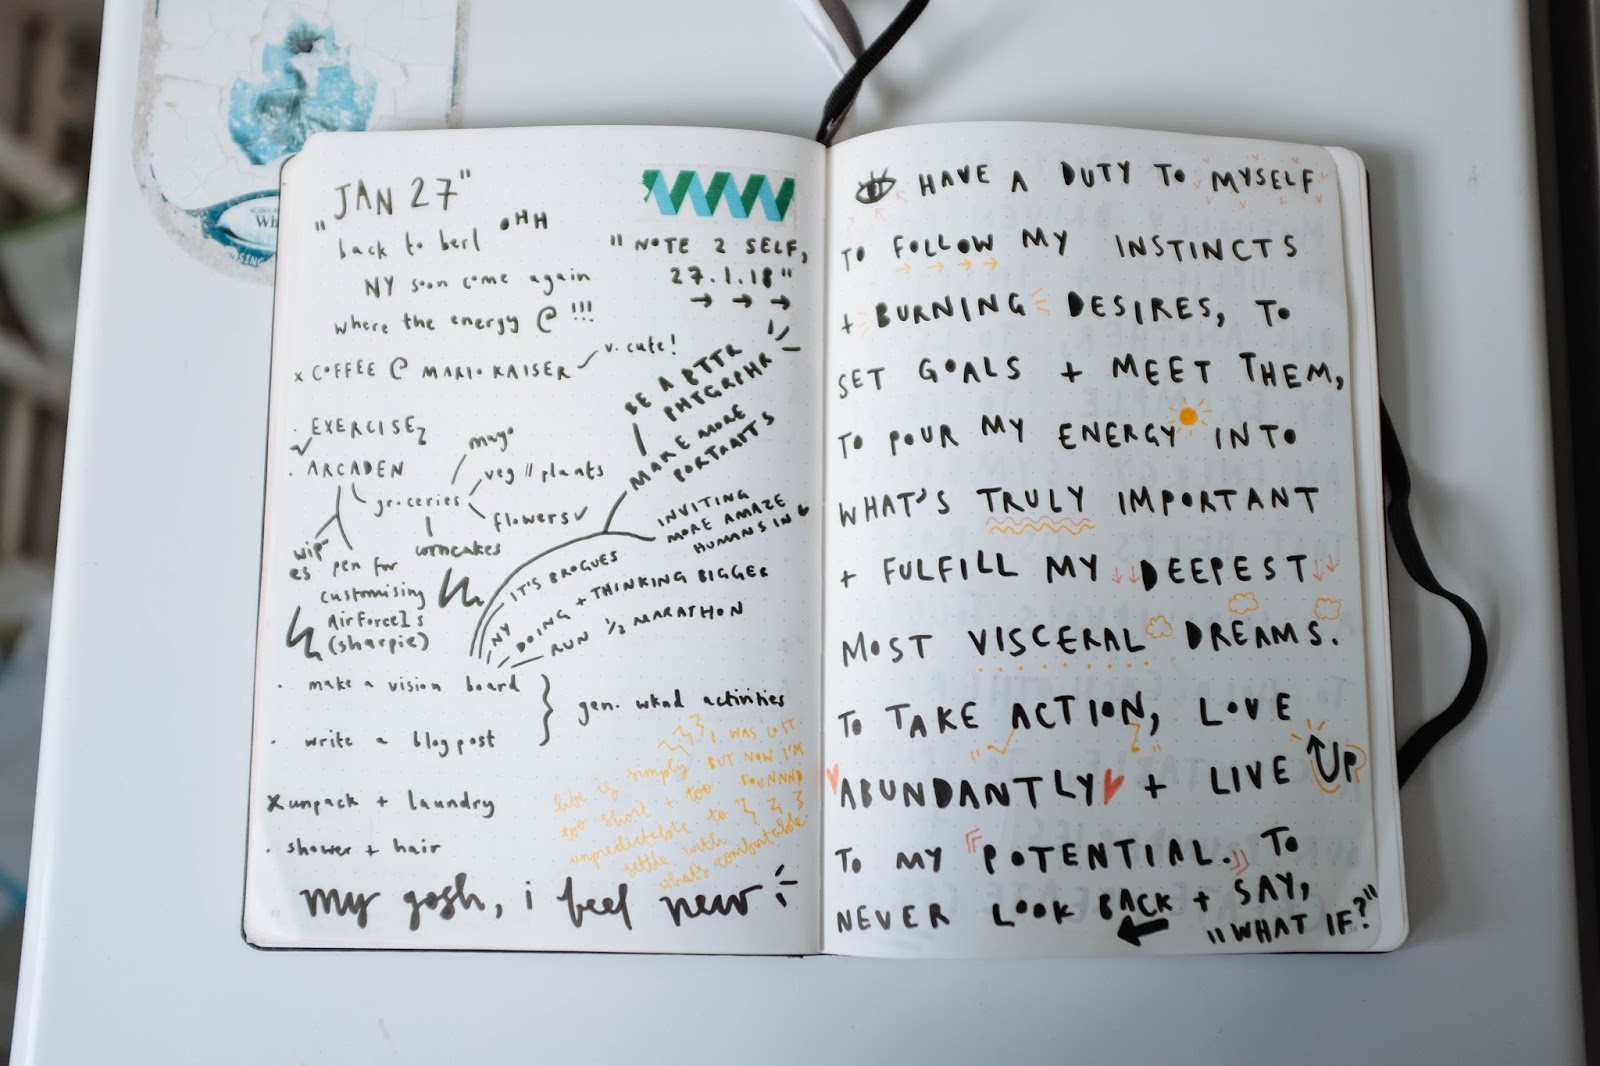 "JAN 27"
OHH
back to berl
NY soon come again
where the energy @ !!!
x COFFEE @ MARIO KAISER
v. cute!
· EXERCISE
· ARCADEN
groceries
mayo
veg // plants
flowers
corncakes
wip-
es
pen for
customising
AirForce1s
(sharpie)
"NOTE 2 SELF,
27.1.18"
→ → →
BE A BTTR
PHTGRPHR
MAKE MORE
PORTRAITS
INVITING
MORE AMAZE
HUMANS IN
NY IT'S BROGUES
DOING + THINKING BIGGER
RUN 1/2 MARATHON
· make a vision board
· write a blog post
gen. wknd activities
x unpack + laundry
· shower + hair
I WAS LOST
BUT NOW I'M
FOUNNND
life is simply
too short + too
unpredictable to
settle with
what's comfortable
my gosh, i feel new
HAVE A DUTY TO MYSELF
TO FOLLOW MY INSTINCTS
+ BURNING DESIRES, TO
SET GOALS + MEET THEM,
TO POUR MY ENERGY INTO
WHAT'S TRULY IMPORTANT
+ FULFILL MY DEEPEST
MOST VISCERAL DREAMS.
TO TAKE ACTION, LOVE
ABUNDANTLY + LIVE UP
TO MY "POTENTIAL." TO
NEVER LOOK BACK + SAY,
"WHAT IF?"